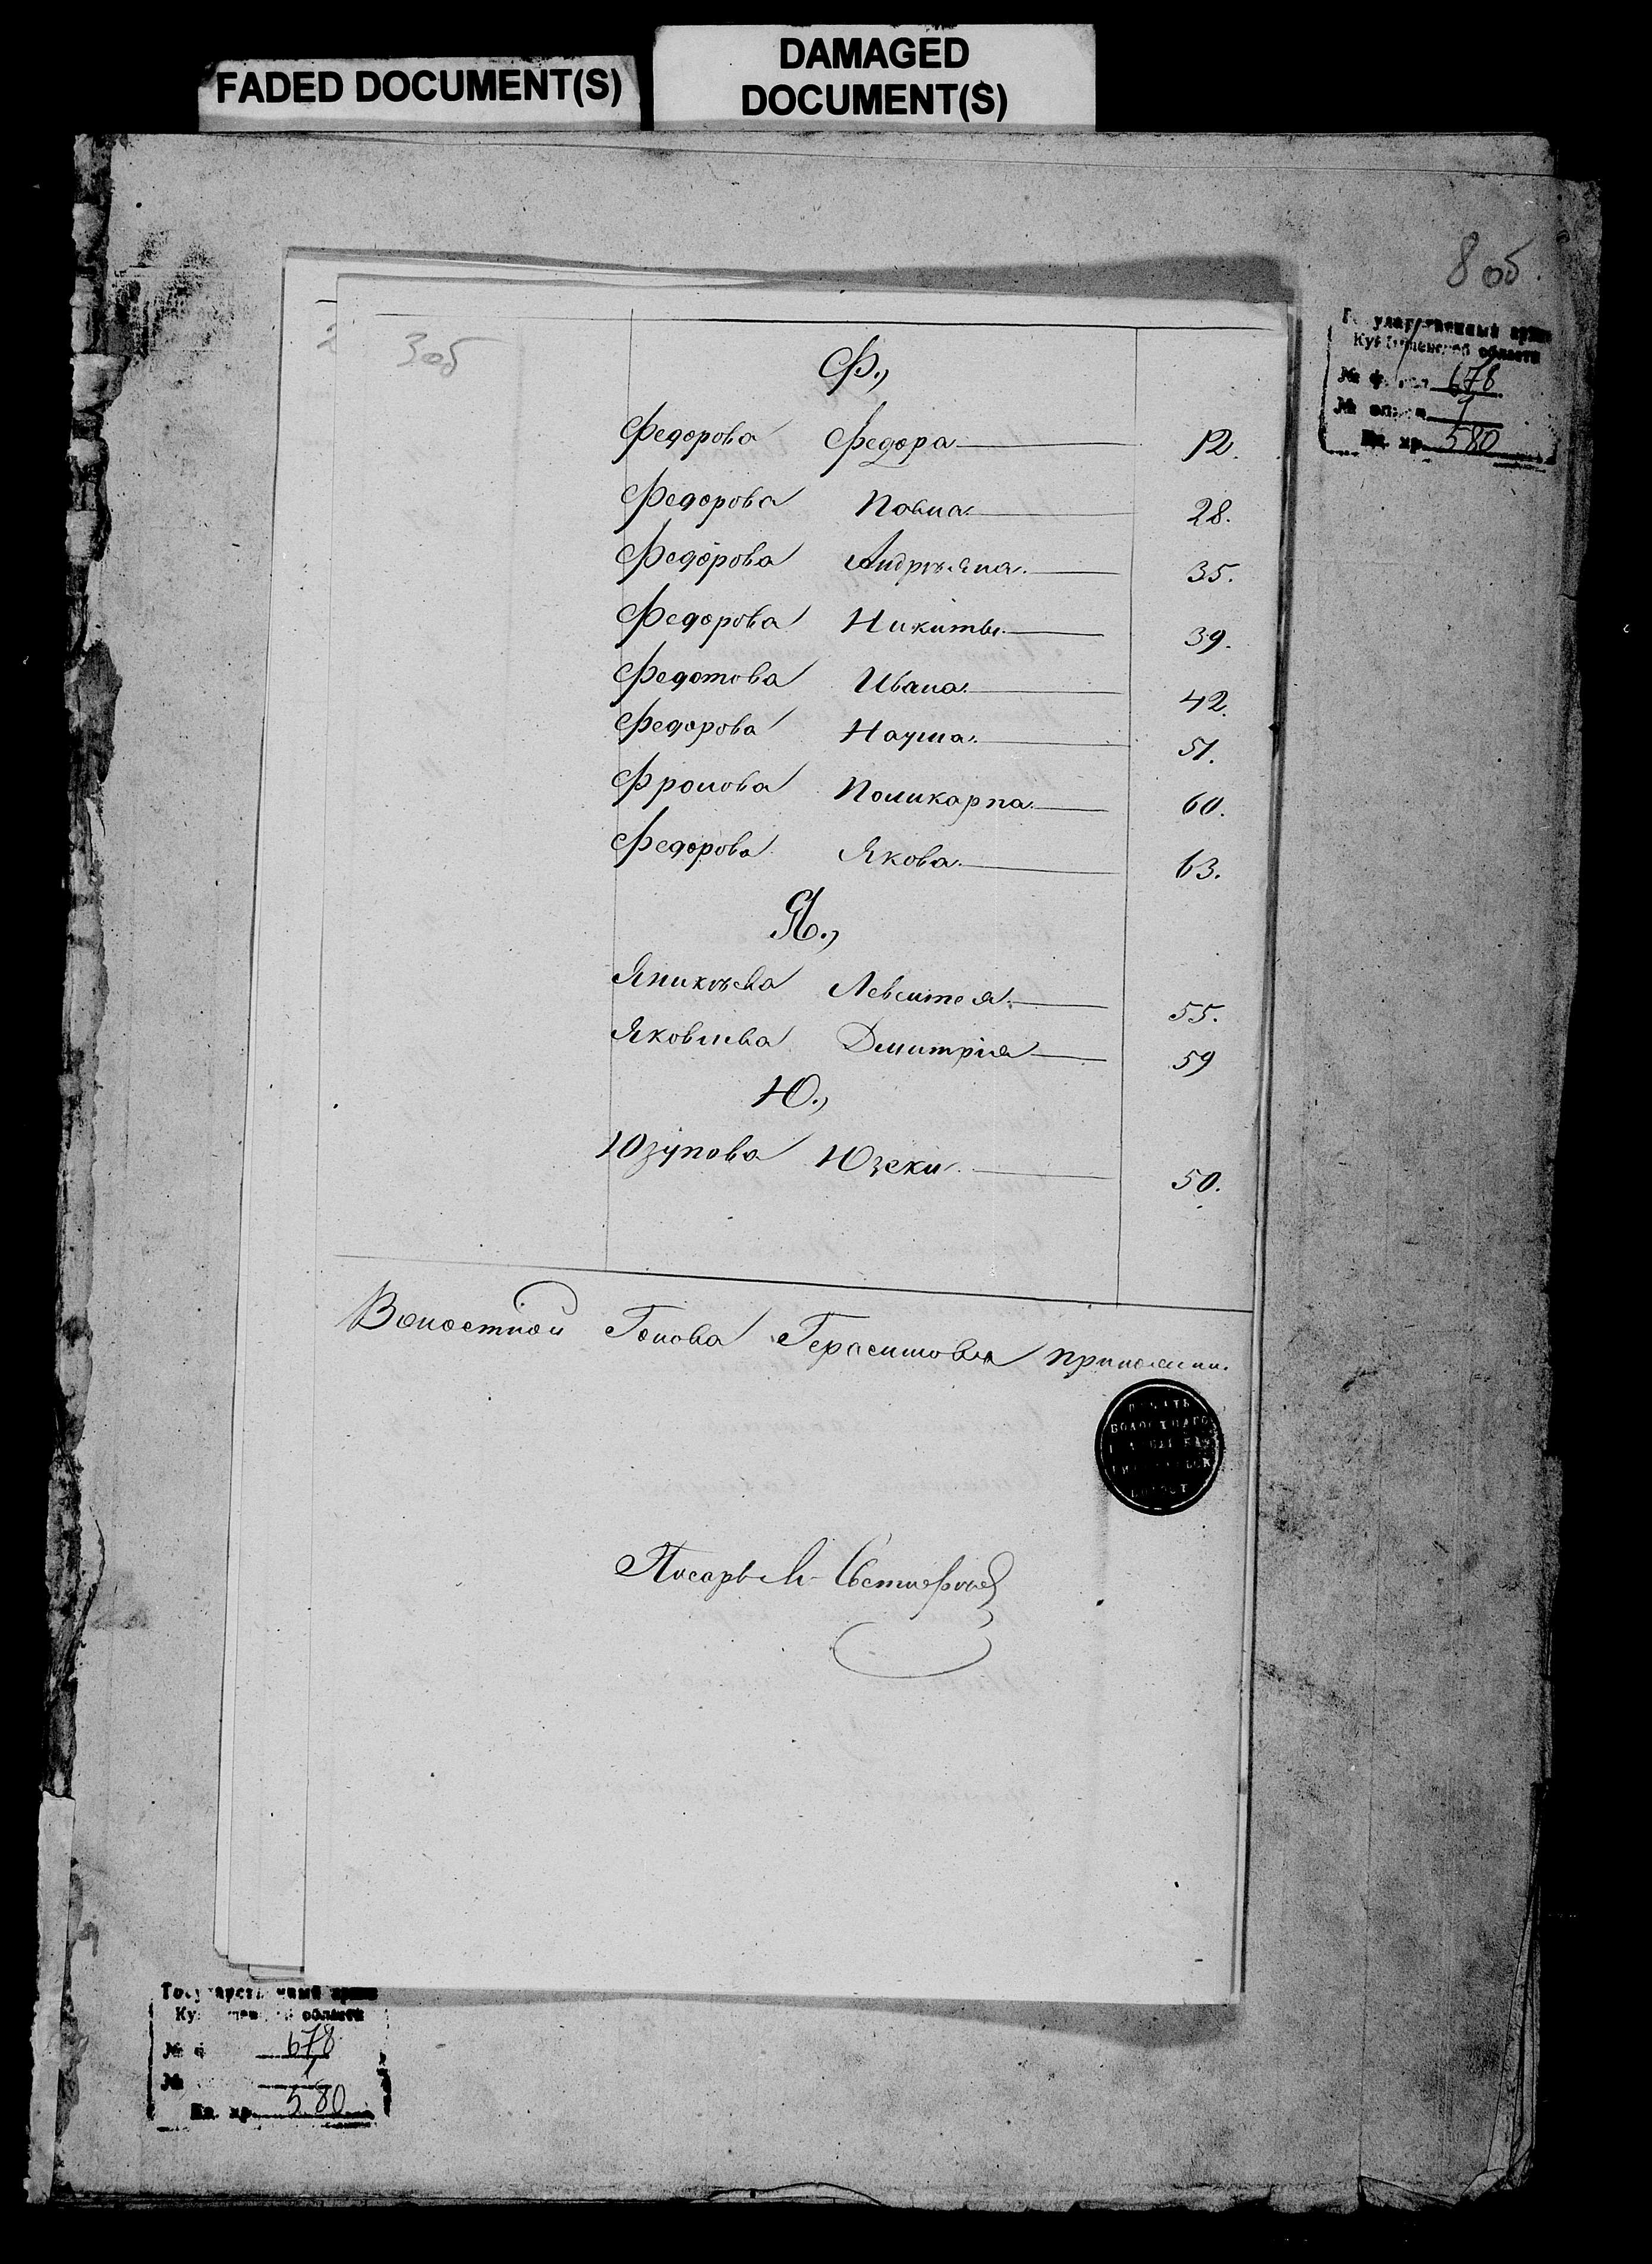 FADED DOCUMENT(S)
DAMAGED
DOCUMENT(S)
8 об.
Государственный архив
Куйбышевской области
№ фонда 678
№ описи 1
Ед. хр. 580
3об
Ф.,
Федорова Федора 12.
Федорова Павла 28.
Федорова Андрѣяна 35.
Федорова Никиты 39.
Федотова Ивана 42.
Федорова Наума 51.
Фролова Поликарпа 60.
Федорова Якова 63.
Я.,
Яникѣева Левонтея 55.
Яковлева Дмитрія 59
Ю.,
Юзупова Юзеки 50.
Волостной Голова Герасимовъ приложилъ
ПЕЧАТЬ
ВОЛОСТНАГО
ВОЛОСТ
Писарь
Государственный архив
Куйбышевской области
№ 678
№ 1
Ед. хр. 580